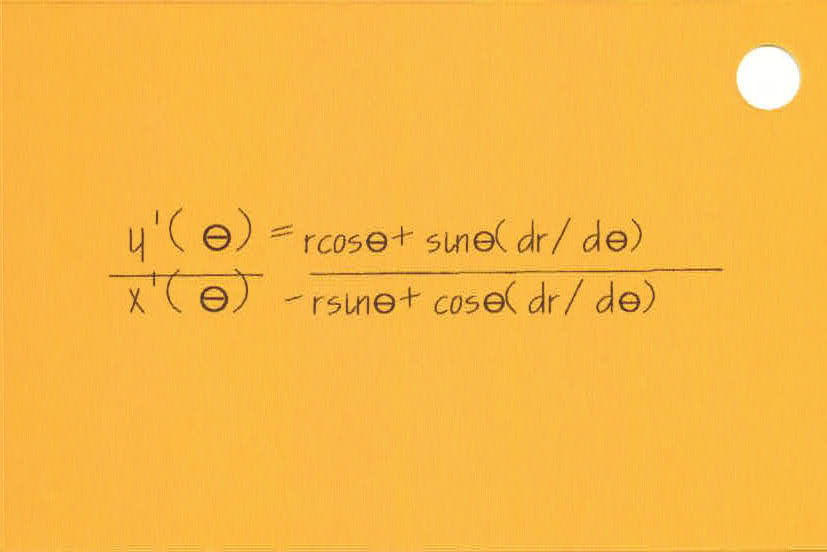 y'(θ) = rcosθ+ sinθ(dr/dθ)
x'(θ) -rsinθ+ cosθ(dr/dθ)